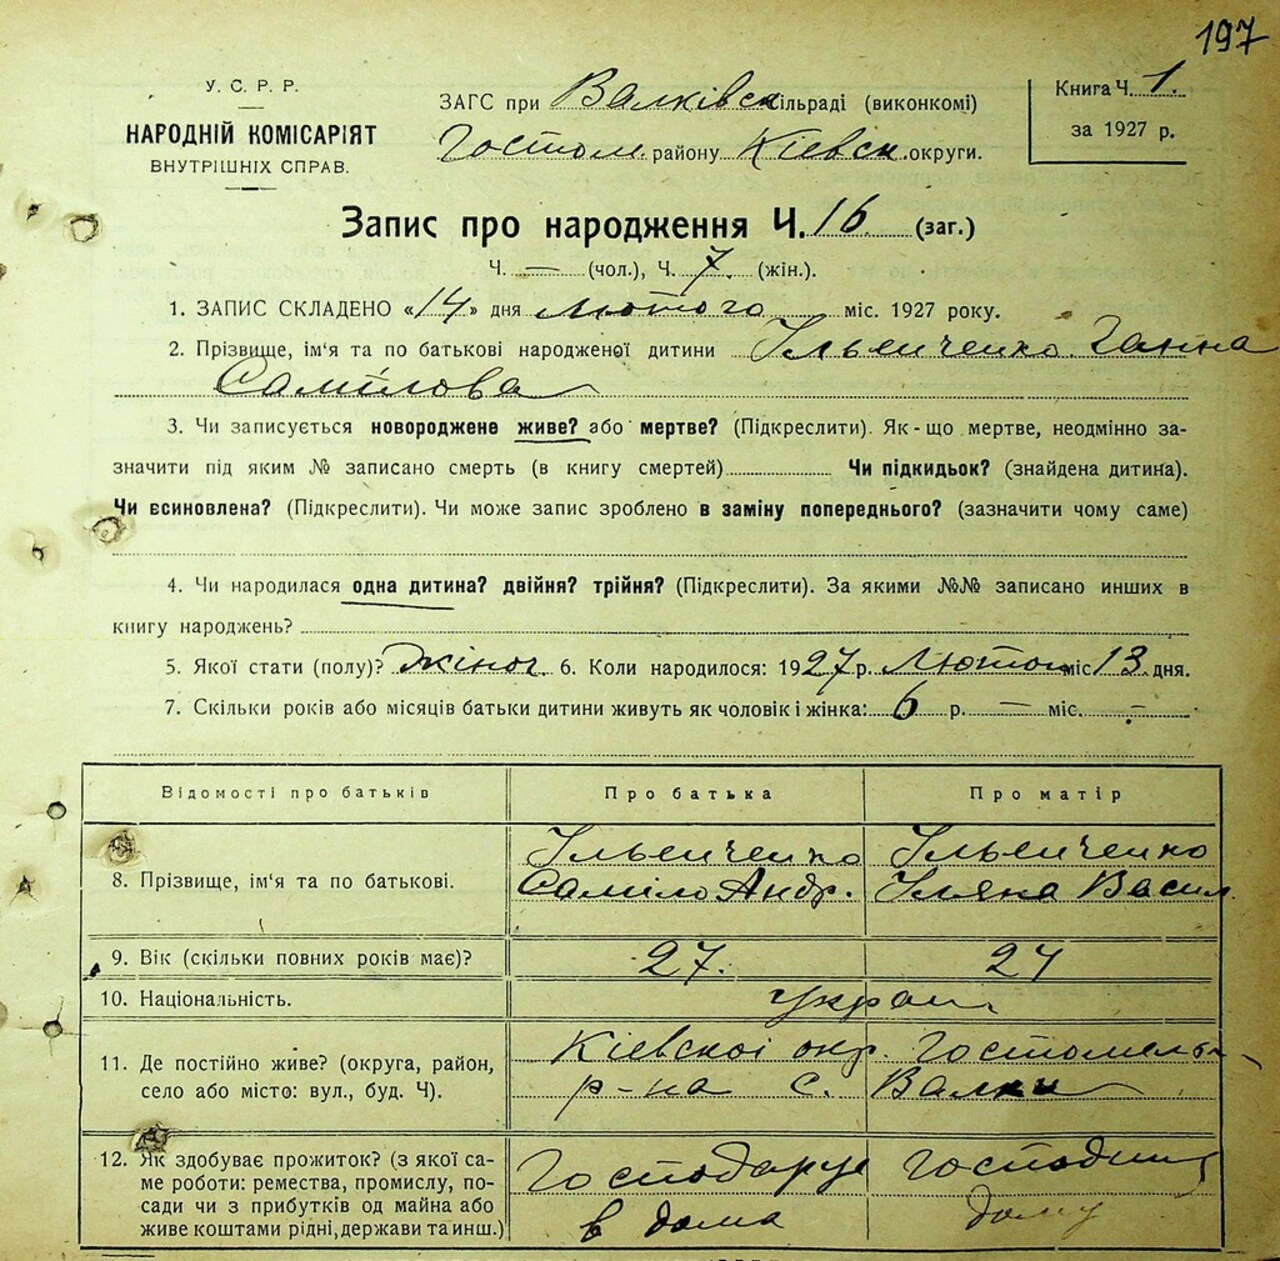 197
У. С. Р. Р.
НАРОДНІЙ КОМІСАРІЯТ
ВНУТРІШНІХ СПРАВ.
ЗАГС при Валківск ільраді (виконкомі)
Гостом. району Кіевск. округи.
Книга Ч. 1.
за 1927 р.
Запис про народження Ч. 16 (заг.)
Ч. — (чол.), Ч. 7. (жін.).
1. ЗАПИС СКЛАДЕНО «14» дня лютого міс. 1927 року.
2. Прізвище, ім'я та по батькові народженої дитини Ільенченко Ганна
Самілова
3. Чи записується новороджене живе? або мертве? (Підкреслити). Як-що мертве, неодмінно за-
значити під яким № записано смерть (в книгу смертей) Чи підкидьок? (знайдена дитина).
Чи всиновлена? (Підкреслити). Чи може запис зроблено в заміну попереднього? (зазначити чому саме)
4. Чи народилася одна дитина? двійня? трійня? (Підкреслити). За якими №№ записано инших в
книгу народжень?
5. Якої стати (полу)? жіноч. 6. Коли народилося: 1927 р. лютого міс 13 дня.
7. Скільки років або місяців батьки дитини живуть як чоловік і жінка: 6 р. — міс. —
Відомості про батьків Про батька Про матір
8. Прізвище, ім'я та по батькові. Ільенченко Саміло Андр. Ільенченко Васил.
9. Вік (скільки повних років має)? 27. 24
10. Національність. украи.
11. Де постійно живе? (округа, район, Кіевскоі окр. Гостомельск
село або місто: вул., буд. Ч). р-на с. Валки
12. Як здобуває прожиток? (з якої са-
ме роботи: ремества, промислу, по-
сади чи з прибутків од майна або
живе коштами рідні, держави та инш.)
Господарує
в дома
дому